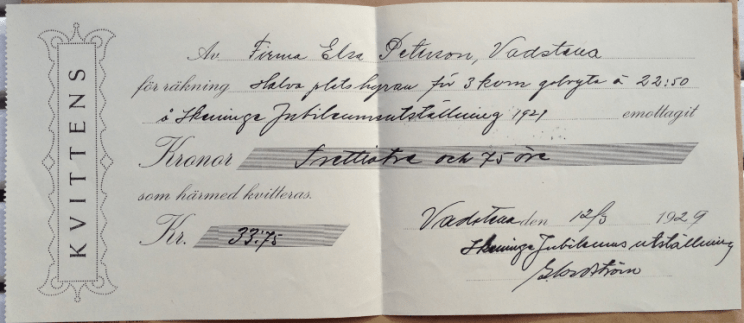 KVITTENS
Av Firma Elsa Peterson, Vadstena
för räkning Halva platshyran för 3 kvm golvyta à 22:50
å Skeninge Jubileumsutställning 1929 emottagit
Kronor Trettiotre och 75 öre
som härmed kvitteras.
Kr. 33:75
Vadstena den 12/3 1929
Skeninge Jubileums utställning